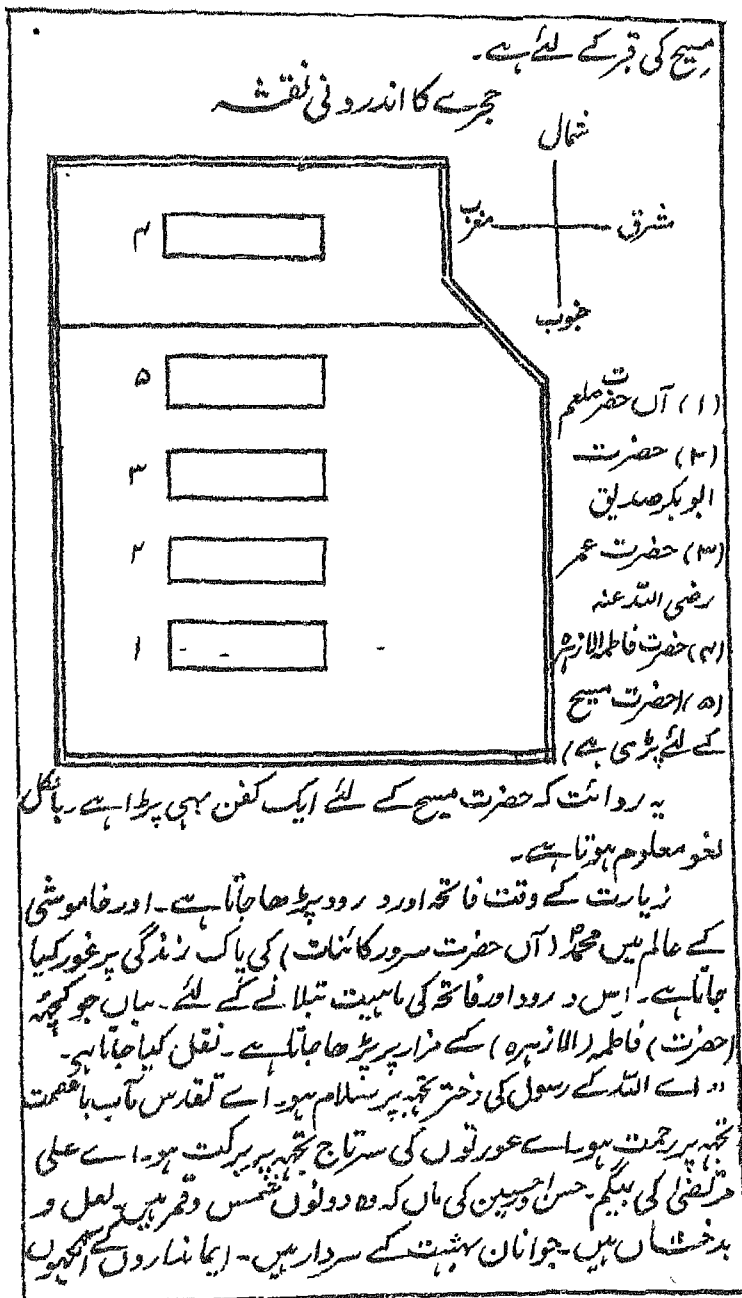 مسیح کی قبر کے لئے ہے۔
حجرے کا اندرونی نقشہ
شمال
مغرب
مشرق
جنوب
۴
۵
۳
۲
۱
(۱) آں حضرت صلعم
(۲) حضرت
ابوبکر صدیق
(۳) حضرت عمر
رضی اللہ عنہ
(۴) حضرت فاطمہ الازہرہ
(۵) (حضرت مسیح
کے لئے پڑی ہے)
یہ روائت کہ حضرت مسیح کے لئے ایک کفن بھی پڑا ہے۔ بالکل
لغو معلوم ہوتا ہے۔
زیارت کے وقت فاتحہ اور درود پڑھا جاتا ہے۔ اور خاموشی
کے عالم میں محمدؐ (آں حضرت سرور کائنات) کی پاک زندگی پر غور کیا
جاتا ہے۔ اس درود اور فاتحہ کی ماہیت بتلانے کے لئے۔ یہاں جو کچھ
(حضرت) فاطمہ (الازہرہ) کے مزار پر پڑھا جاتا ہے۔ نقل کیا جاتا ہے۔
"اے اللہ کے رسول کی دختر تجہہ پر سلام ہو۔ اے تقدس مآب باعصمت
تجہہ پر رحمت ہو۔ اے عورتوں کی سرتاج تجہہ پر برکت ہو۔ اے علی
مرتضیٰ کی بیگم۔ حسن و حسین کی ماں کہ وہ دونوں شمس و قمر ہیں۔ لعل و
بدخشاں ہیں۔ جوانان بہشت کے سردار ہیں۔ ایمانداروں کے آنکہوں